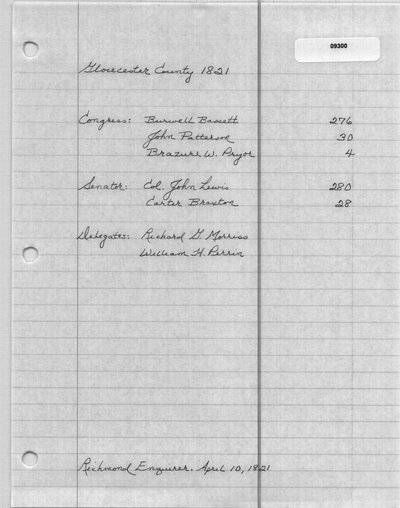 09300
Gloucester County 1821
Congress: Burwell Bassett 276
John Patterson 30
Brazure W. Pryor 4
Senator: Col. John Lewis 280
Carter Braxton 28
Delegates: Richard G. Morriss
William H. Perrin
Richmond Enquirer. April 10, 1821